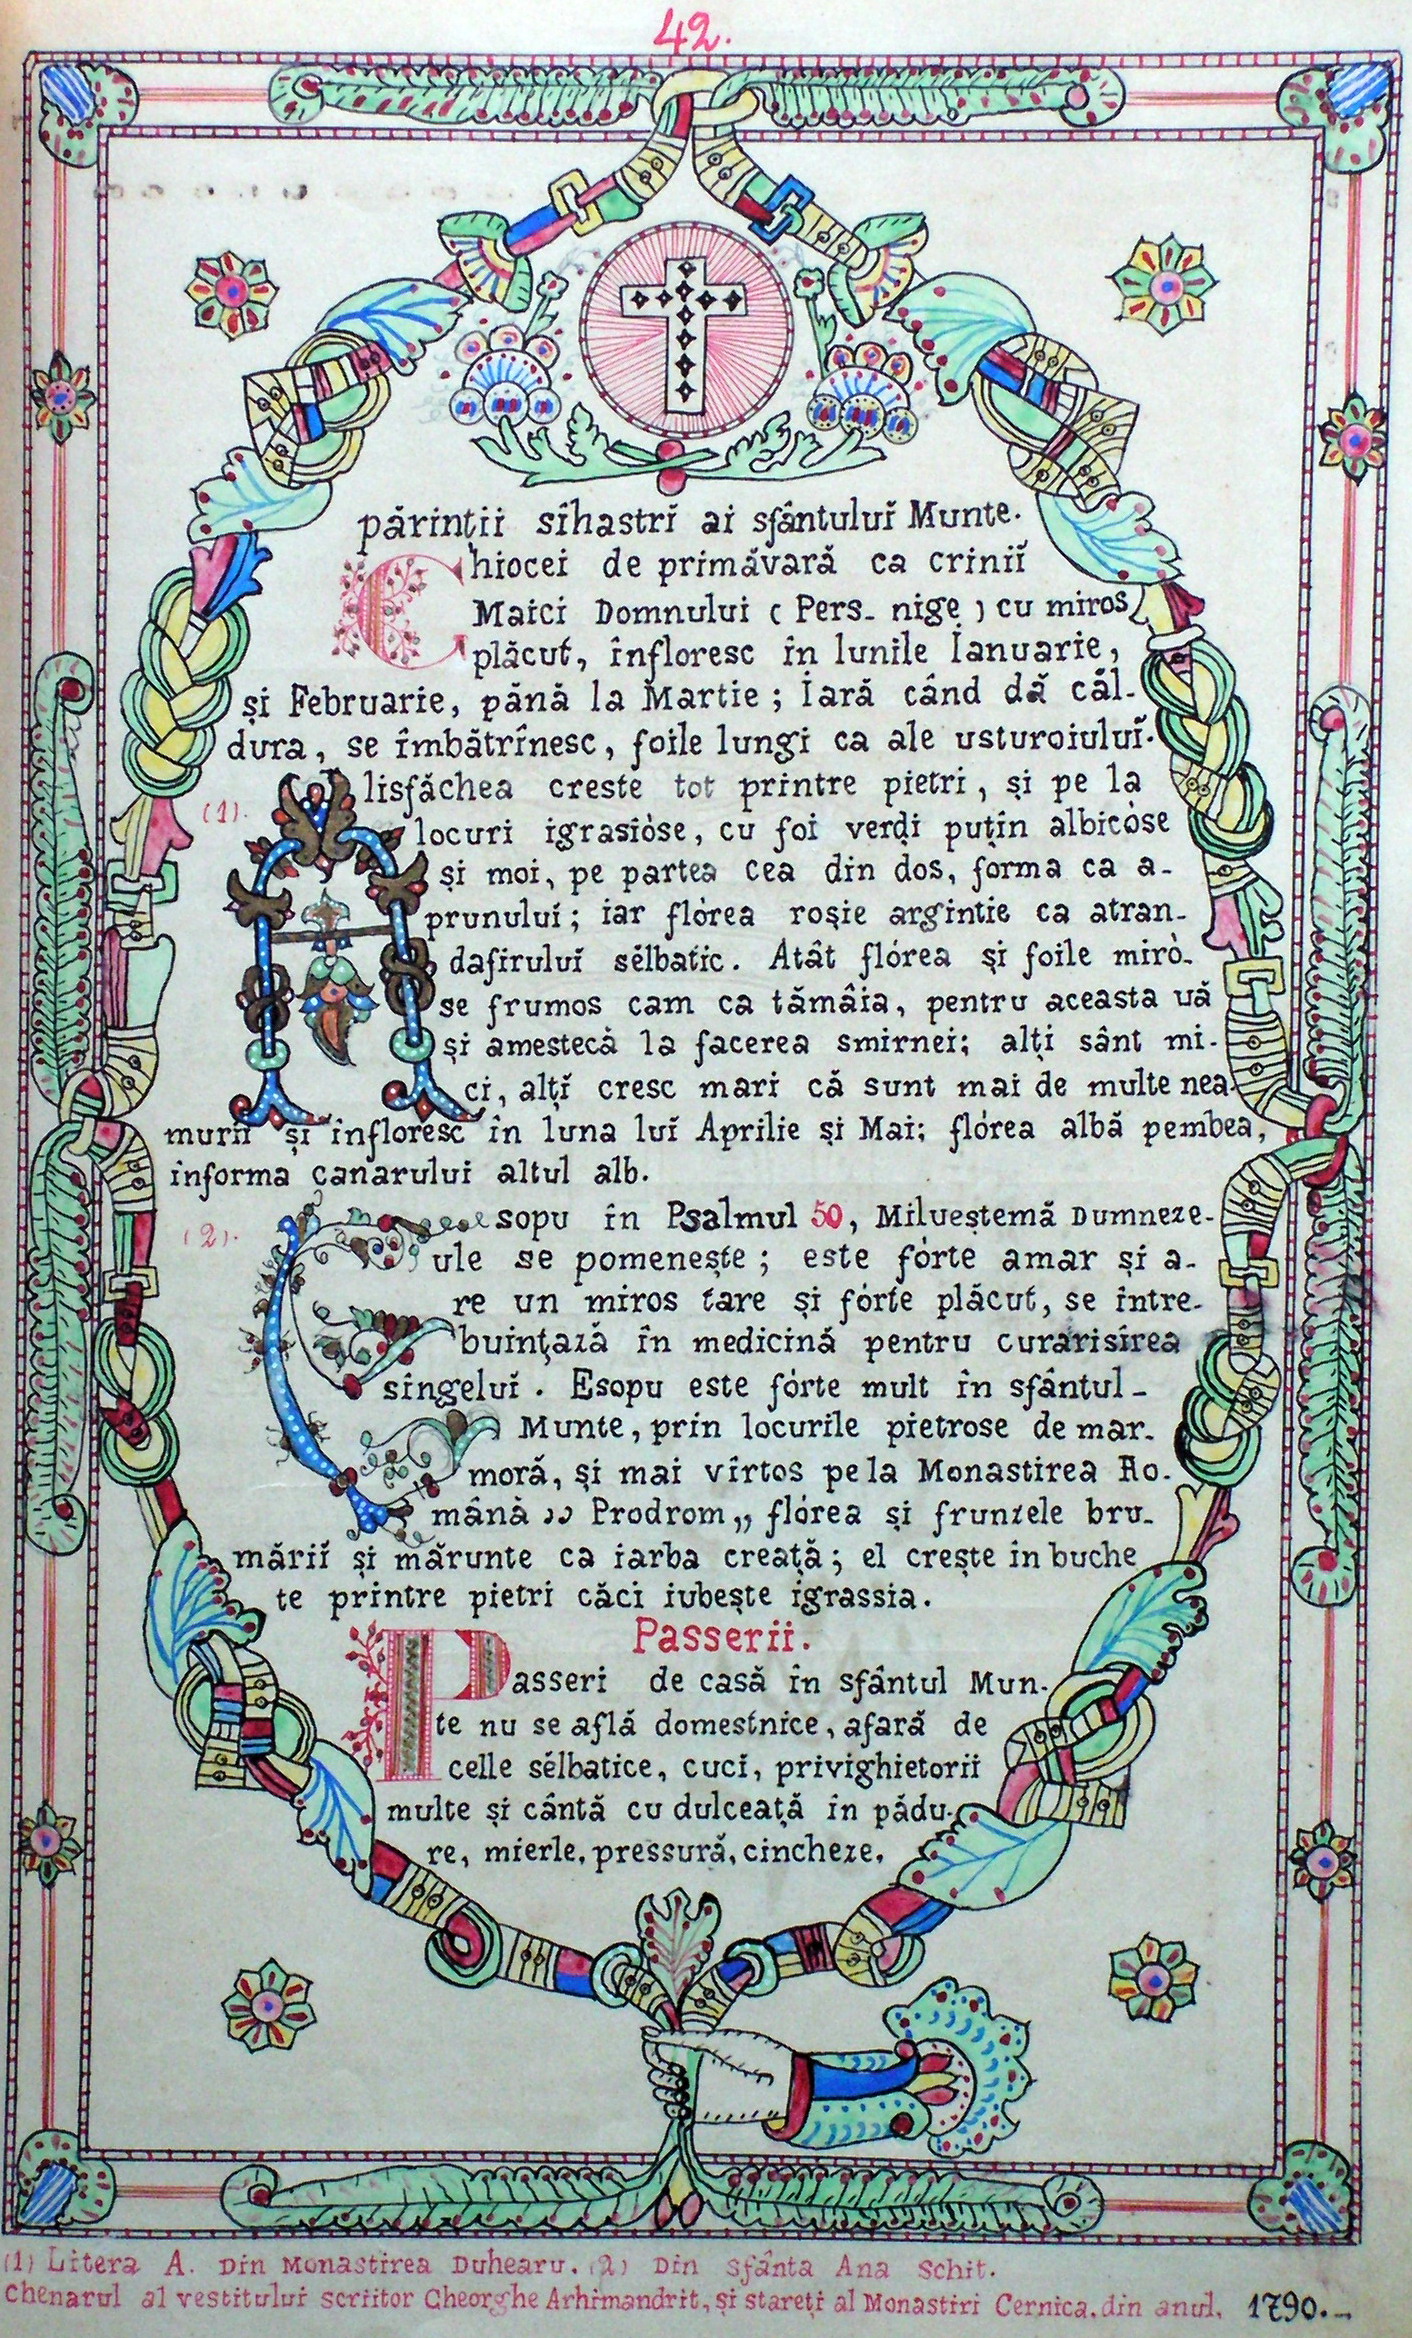 42.
părințiĭ sîhastrĭ ai sfântuluĭ Munte.
Ghiocei de primăvară ca criniĭ
Maici Domnului ( Pers. nige ) cu miros
plăcut, înfloresc în lunile Ianuarie,
și Februarie, pănă la Martie ; Iară când dă căl-
dura, se îmbătrînesc, foile lungi ca ale usturoiuluĭ.
(1).
Alisfăchea creste tot printre pietri, și pe la
locuri igrasióse, cu foi verḑi puțin albicóse
și moi, pe partea cea din dos, forma ca a-
prunuluĭ ; iar flórea roșie argintie ca atran-
dafiruluĭ sélbatic. Atât flórea și foile miró-
se frumos cam ca tămâia, pentru aceasta uă
și amestecă la facerea smirnei; alți sânt mi-
ci, alțĭ cresc mari că sunt mai de multe nea-
murĭĭ și înfloresc în luna luĭ Aprilie și Mai; flórea albă pembea,
informa canarului altul alb.
(2).
Esopu în Psalmul 50, Milueștemă Dumneze-
ule se pomenește ; este fórte amar și a-
re un miros tare și fórte plăcut, se între-
buințază în medicină pentru curarisîrea
sîngeluĭ. Esopu este fórte mult în sfântul-
Munte, prin locurile pietrose de mar-
moră, și mai vîrtos pe la Monastirea Ro-
mână „ Prodrom „ flórea și frunzele bru-
măriĭ și mărunte ca iarba creață ; el crește în buche
te printre pietri căci iubește igrassia.
Passerii.
Passeri de casă în sfântul Mun-
te nu se află domestnice, afară de
celle sélbatice, cucĭ, privighietorii
multe și cântă cu dulceață în pădu-
re, mierle, pressură, cincheze,
(1) Litera A. Din Monastirea Duhearu. (2) Din Sfânta Ana Schit.
Chenarul al vestituluĭ scriitor Gheorghe Arhimandrit, și stareți al Monastiri Cernica. din anul. 1790.-